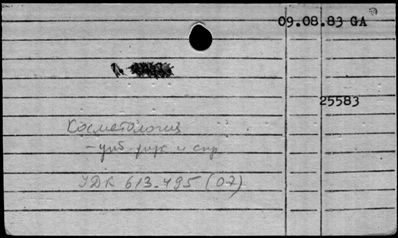 09.08.83 GA
25583
Косметология
- учб. рук. и спр.
УДК 613.495 (07)